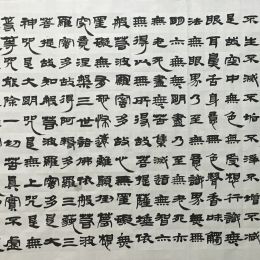 不生不滅不垢不淨不增不減
是故空中無色無受想行識無
眼耳鼻舌身意無色聲香味觸
法無眼界乃至無意識界無無
明亦無無明盡乃至無老死亦
無老死盡無苦集滅道無智亦
無得以無所得故菩提薩埵依
般若波羅蜜多故心無罣礙無
罣礙故無有恐怖遠離顛倒夢想
究竟涅槃三世諸佛依般若波
羅蜜多故得阿耨多羅三藐三
菩提故知般若波羅蜜多是大
神咒是大明咒是無上咒是無
等等咒能除一切苦真實不虛